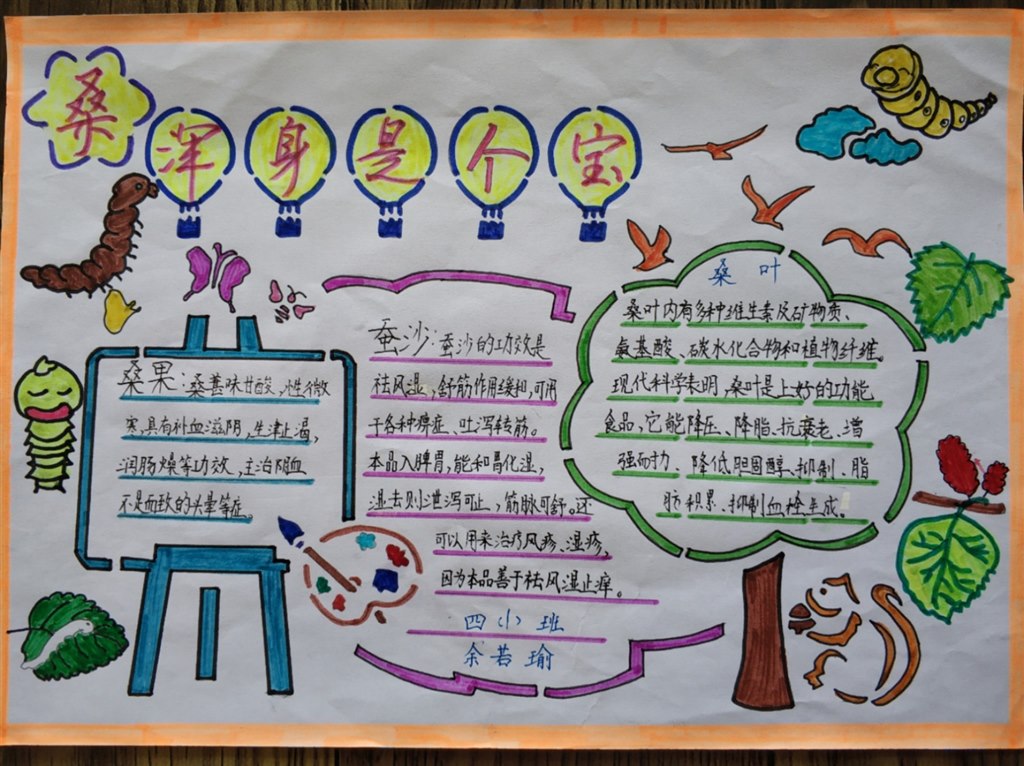 桑浑身是个宝
桑果:桑葚味甘酸,性微
寒,具有补血滋阴,生津止渴,
润肠燥等功效,主治阴血
不足而致的头晕等症。
蚕沙:蚕沙的功效是
祛风湿,舒筋作用缓和,可用
于各种痹症、吐泻转筋。
本品入脾胃,能和胃化湿,
湿去则泄泻可止,筋脉可舒。还
可以用来治疗风疹、湿疹,
因为本品善于祛风湿止痒。
四(小)班
余若瑜
桑叶
桑叶内有多种维生素及矿物质、
氨基酸、碳水化合物和植物纤维。
现代科学表明,桑叶是上好的功能
食品,它能降压、降脂、抗衰老、增
强耐力、降低胆固醇、抑制、脂
肪积累、抑制血栓生成。